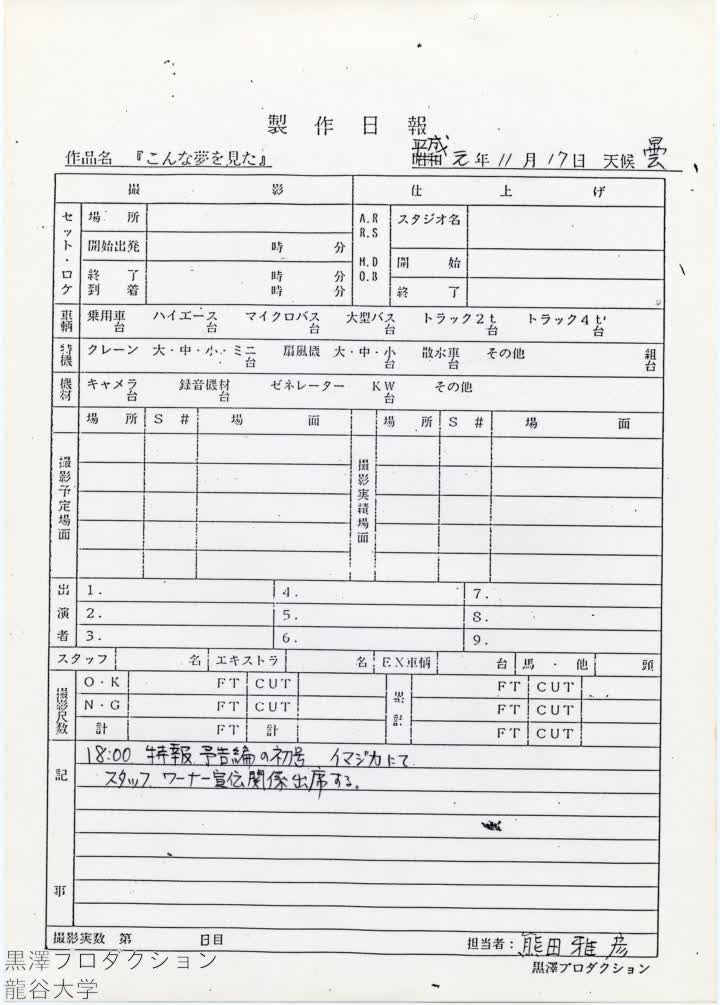 製作日報
作品名 『こんな夢を見た』 平成 元年 11月 17日 天候 曇
撮影 仕上げ
セット・ロケ 場所 A.R R.S スタジオ名
開始出発 時 分 M.D O.B 開始
終了 時 分 終了
到着 時 分
車輌 乗用車 台 ハイエース 台 マイクロバス 台 大型バス 台 トラック2t 台 トラック4t 台
特機 クレーン 大・中・小・ミニ 台 扇風機 大・中・小 台 散水車 台 その他 組 台
機材 キャメラ 台 録音機材 台 ゼネレーター KW 台 その他
場所 S# 場面 場所 S# 場面
撮影予定場面 撮影実績場面
出演者 1. 4. 7.
2. 5. 8.
3. 6. 9.
スタッフ 名 エキストラ 名 EX車輌 台 馬・他 頭
撮影尺数 O・K FT CUT 累計 FT CUT
N・G FT CUT FT CUT
計 FT 計 FT CUT
記事 18:00 特報 予告編の初号 イマジカにて
スタッフ ワーナー宣伝関係出席する。
撮影実数 第 日目 担当者: 熊田雅彦
黒澤プロダクション
黒澤プロダクション
龍谷大学